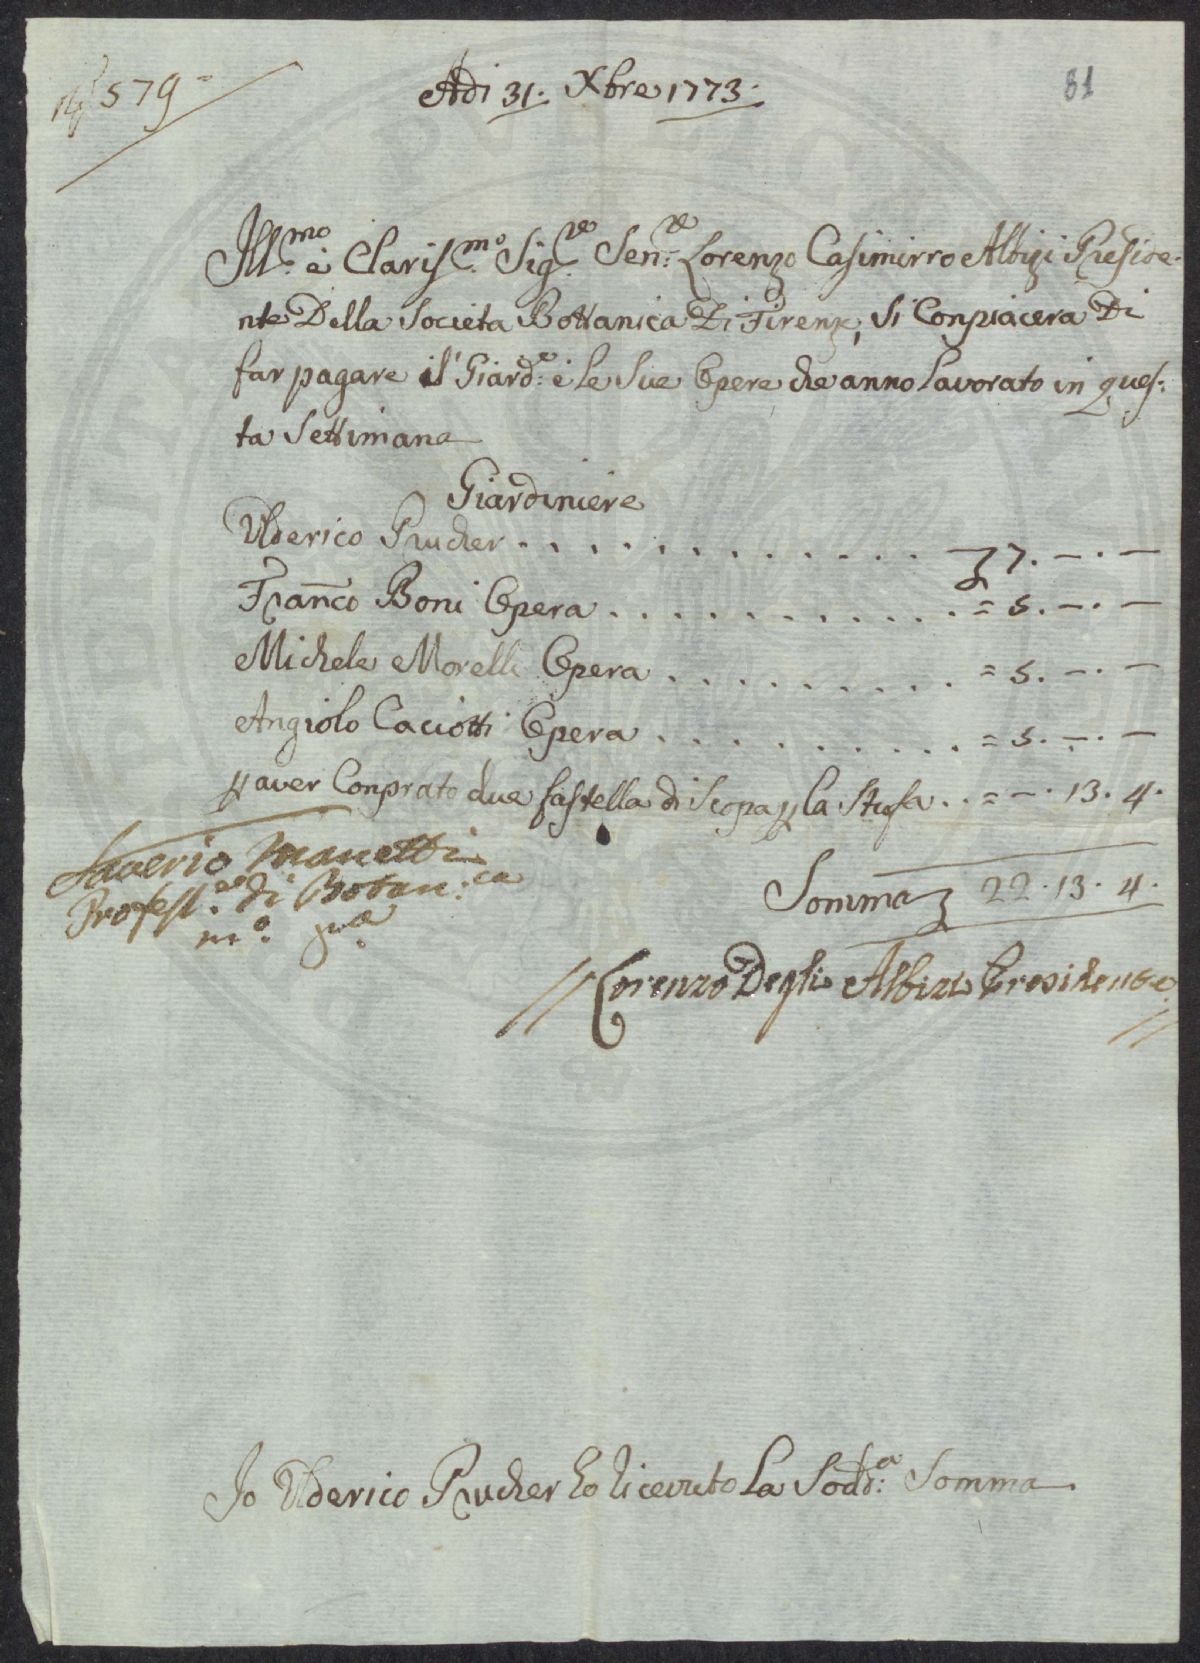 N.º 579
Adi 31. Xbre 1773.
81
Ill.mo è Clariss.mo Sig.re Sen.re Lorenzo Casimirro Albizi Preside-
nte Della Societa Bottanica Di Firenz,, Si Conpiacera Di
far pagare il Giard.e è le Sue Opere che anno Lavorato in ques:
ta Settimana
Giardiniere
Ulderico Prucher . . . . . . . . . . . . 7. — . —
Fran̄co Boni Opera . . . . . . . . . . . = 5. — . —
Michele Morelli Opera . . . . . . . . . = 5. — . —
Angiolo Caciotti Opera . . . . . . . . . = 5. — . —
p aver Conprato due fastella di Scopa p la Stufa . . = — . 13. 4.
Saverio Manetti
Profess.re di Botan:ca
m.o pria
Somma 22. 13. 4.
// Lorenzo Degli Albizi Presidente //
Io Ulderico Prucher ho ricevuto La Sodd.a Somma